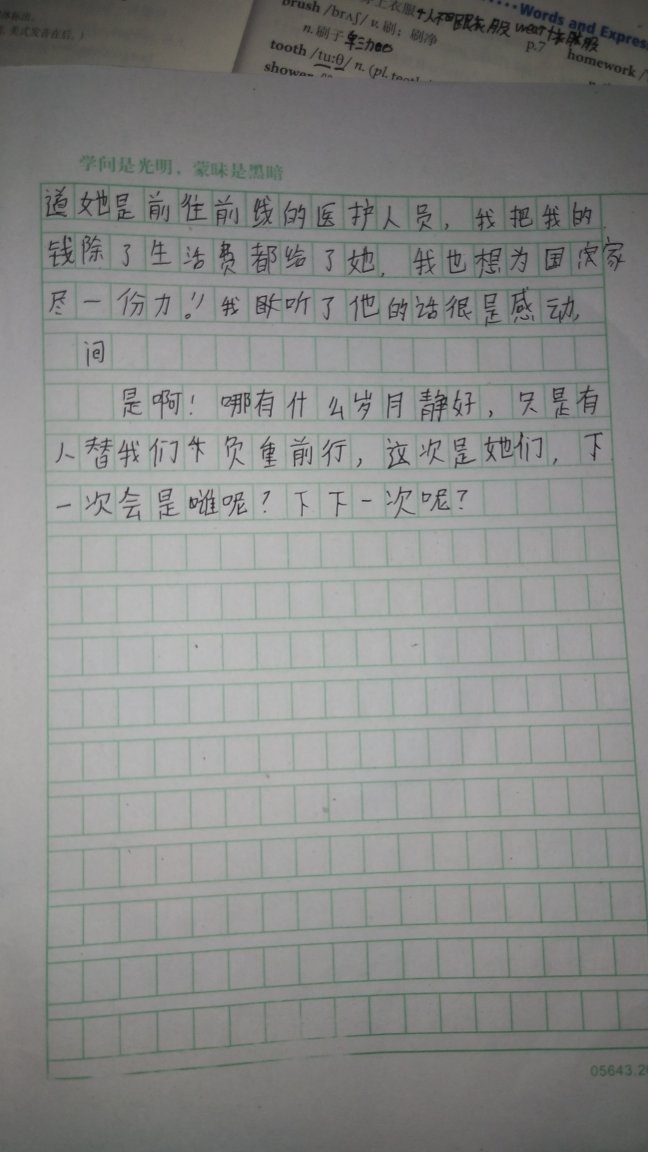 上衣服 个人不跟衣服 wear
brush /brʌʃ/ v. 刷；刷净
Words and Expres
n. 刷子
p.7
homework /
tooth /tu:θ/ n. (pl. teeth
shower
美式发音在后。）
学问是光明，蒙昧是黑暗
道她是前往前线的医护人员，我把我的
钱除了生活费都给了她，我也想为国家
尽一份力。”我听了他的话很是感动，
间
是啊！哪有什么岁月静好，只是有
人替我们负重前行，这次是她们，下
一次会是谁呢？下下一次呢？
05643.20